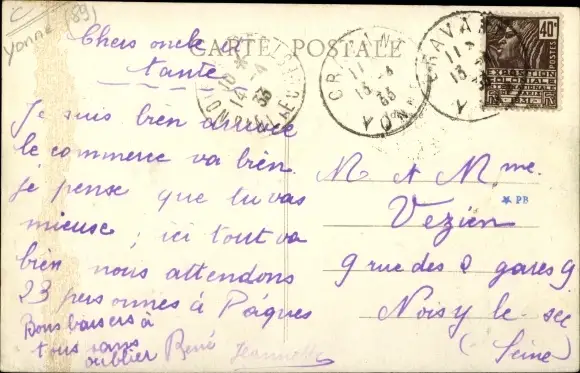 Yonne (89)
CARTE POSTALE
Chers oncle et
tante
Je suis bien arrivée
le commerce va bien.
je pense que tu vas
mieuse ; ici tout va
bien nous attendons
23 personnes à Pâques
Bons baisers à
tous sans
oublier René
Jeannette
CRAVAN
YONNE
11
13 - 4
33
CRAVAN
11
13
33
40c
POSTES
EXPOSITION
COLONIALE
INTERNATIONALE
PARIS 1931
M et Mme.
* PB
Vezien
9 rue des 2 gares 9
Noisy le sec
(Seine)